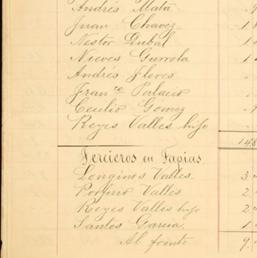 Andrés Mata
Juan Chavez
Nestor Dubal
Nieves Gurrola
Andrés Flores
Fran^co Portacio
Cecilio Gomez
Reyes Valles hijo
148
Tercieros en Tapias
Longinos Valles
Porfirio Valles
Reyes Valles hijo
Santos Garcia
Al frente